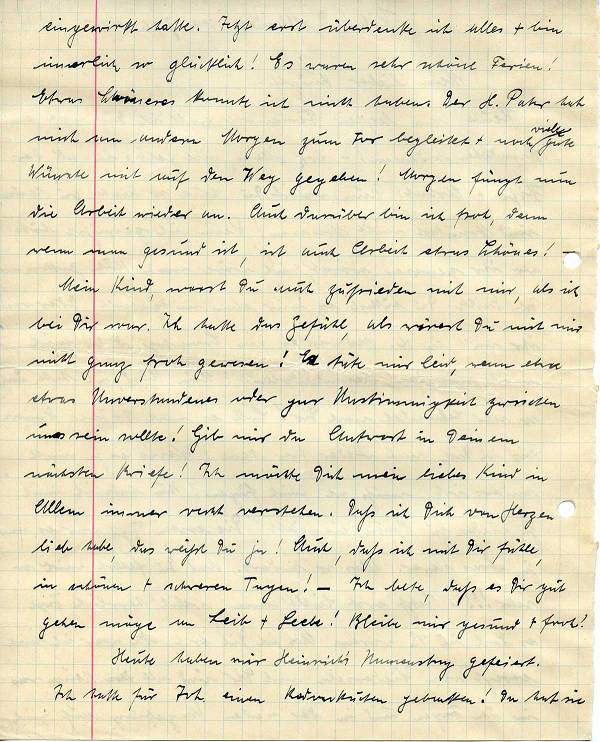 eingewirkt hatte. Jetzt erst überdenke ich alles + bin
innerlich so glücklich! Es waren sehr schöne Ferien!
Etwas Schöneres konnte ich nicht haben. Der H. Pater hat
mich am andern Morgen zum Tor begleitet + noch viele gute
Wünsche mit auf den Weg gegeben! Morgen fängt nun
die Arbeit wieder an. Auch darüber bin ich froh, denn
wenn man gesund ist, ist auch Arbeit etwas Schönes! –
Mein Kind, warst Du auch zufrieden mit mir, als ich
bei Dir war. Ich hatte das Gefühl, als wärest Du mit mir
nicht ganz froh gewesen! Es täte mir leid, wenn etwa
etwas Unverstandenes oder gar Unstimmigkeit zwischen
uns sein sollte! Gib mir die Antwort in Deinem
nächsten Briefe! Ich möchte Dich mein liebes Kind in
Allem immer recht verstehen. Daß ich Dich von Herzen
lieb habe, das weißt Du ja! Auch, daß ich mit Dir fühle,
in schönen + schweren Tagen! – Ich bete, daß es Dir gut
gehen möge an Leib + Seele! Bleibe mir gesund + froh!
Heute haben wir Heinrich's Namenstag gefeiert.
Ich hatte für Joh. einen Radonkuchen gebacken! Da hat sie